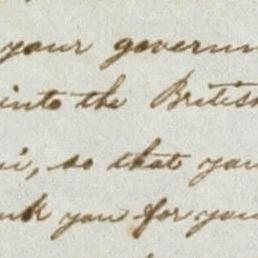 your governm
into the British
i, so that you
nk you for your